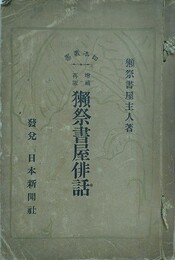 獺祭書屋主人著
增補
再版
獺祭書屋俳話
發兌 日本新聞社